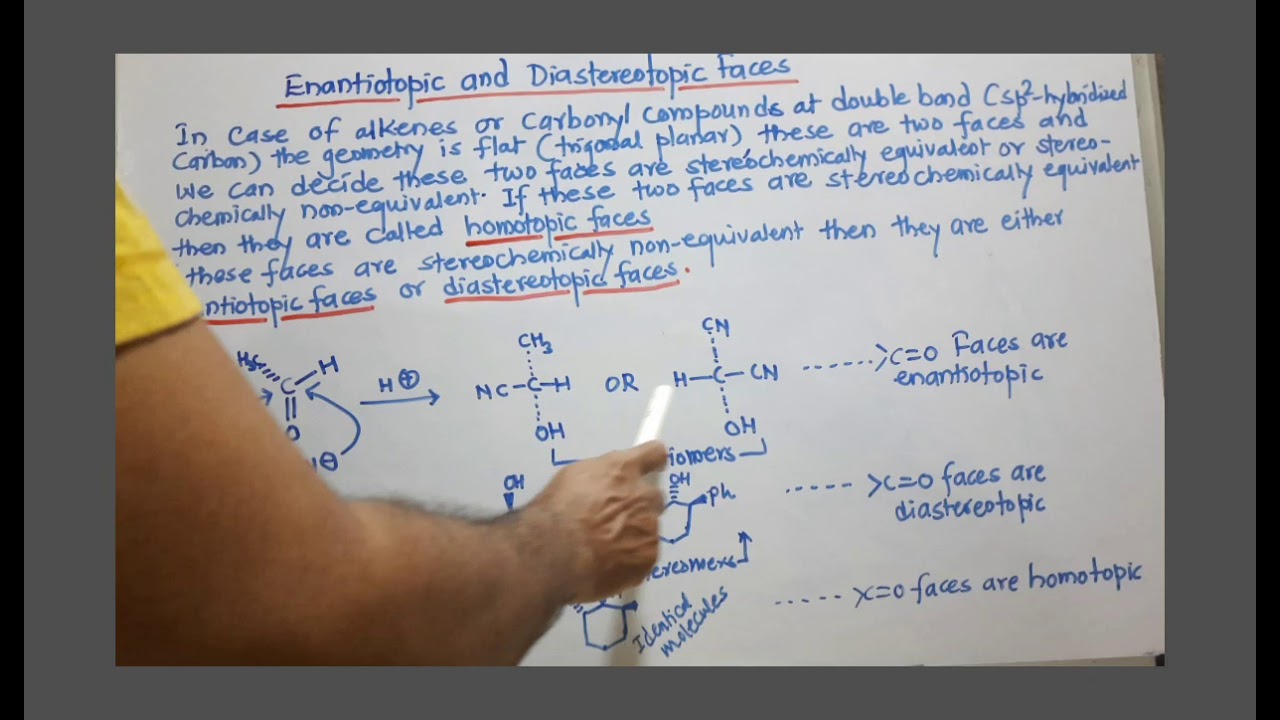 Enantiotopic and Diastereotopic faces
In case of alkenes or carbonyl compounds at double bond (sp²-hybridized
carbon) the geometry is flat (trigonal planar) these are two faces and
we can decide these two faces are stereochemically equivalent or stereo-
chemically non-equivalent. If these two faces are stereochemically equivalent
then they are called homotopic faces
these faces are stereochemically non-equivalent then they are either
ntiotopic faces or diastereotopic faces.
H₃C H
C
O
H⊕
⊖
CH₃
NC-C-H
OH
OR
CN
H-C-CN
OH
iomers
>C=O Faces are
enantiotopic
OH
OH
Ph
ereomers
>C=O faces are
diastereotopic
Identical
molecules
>C=O faces are homotopic